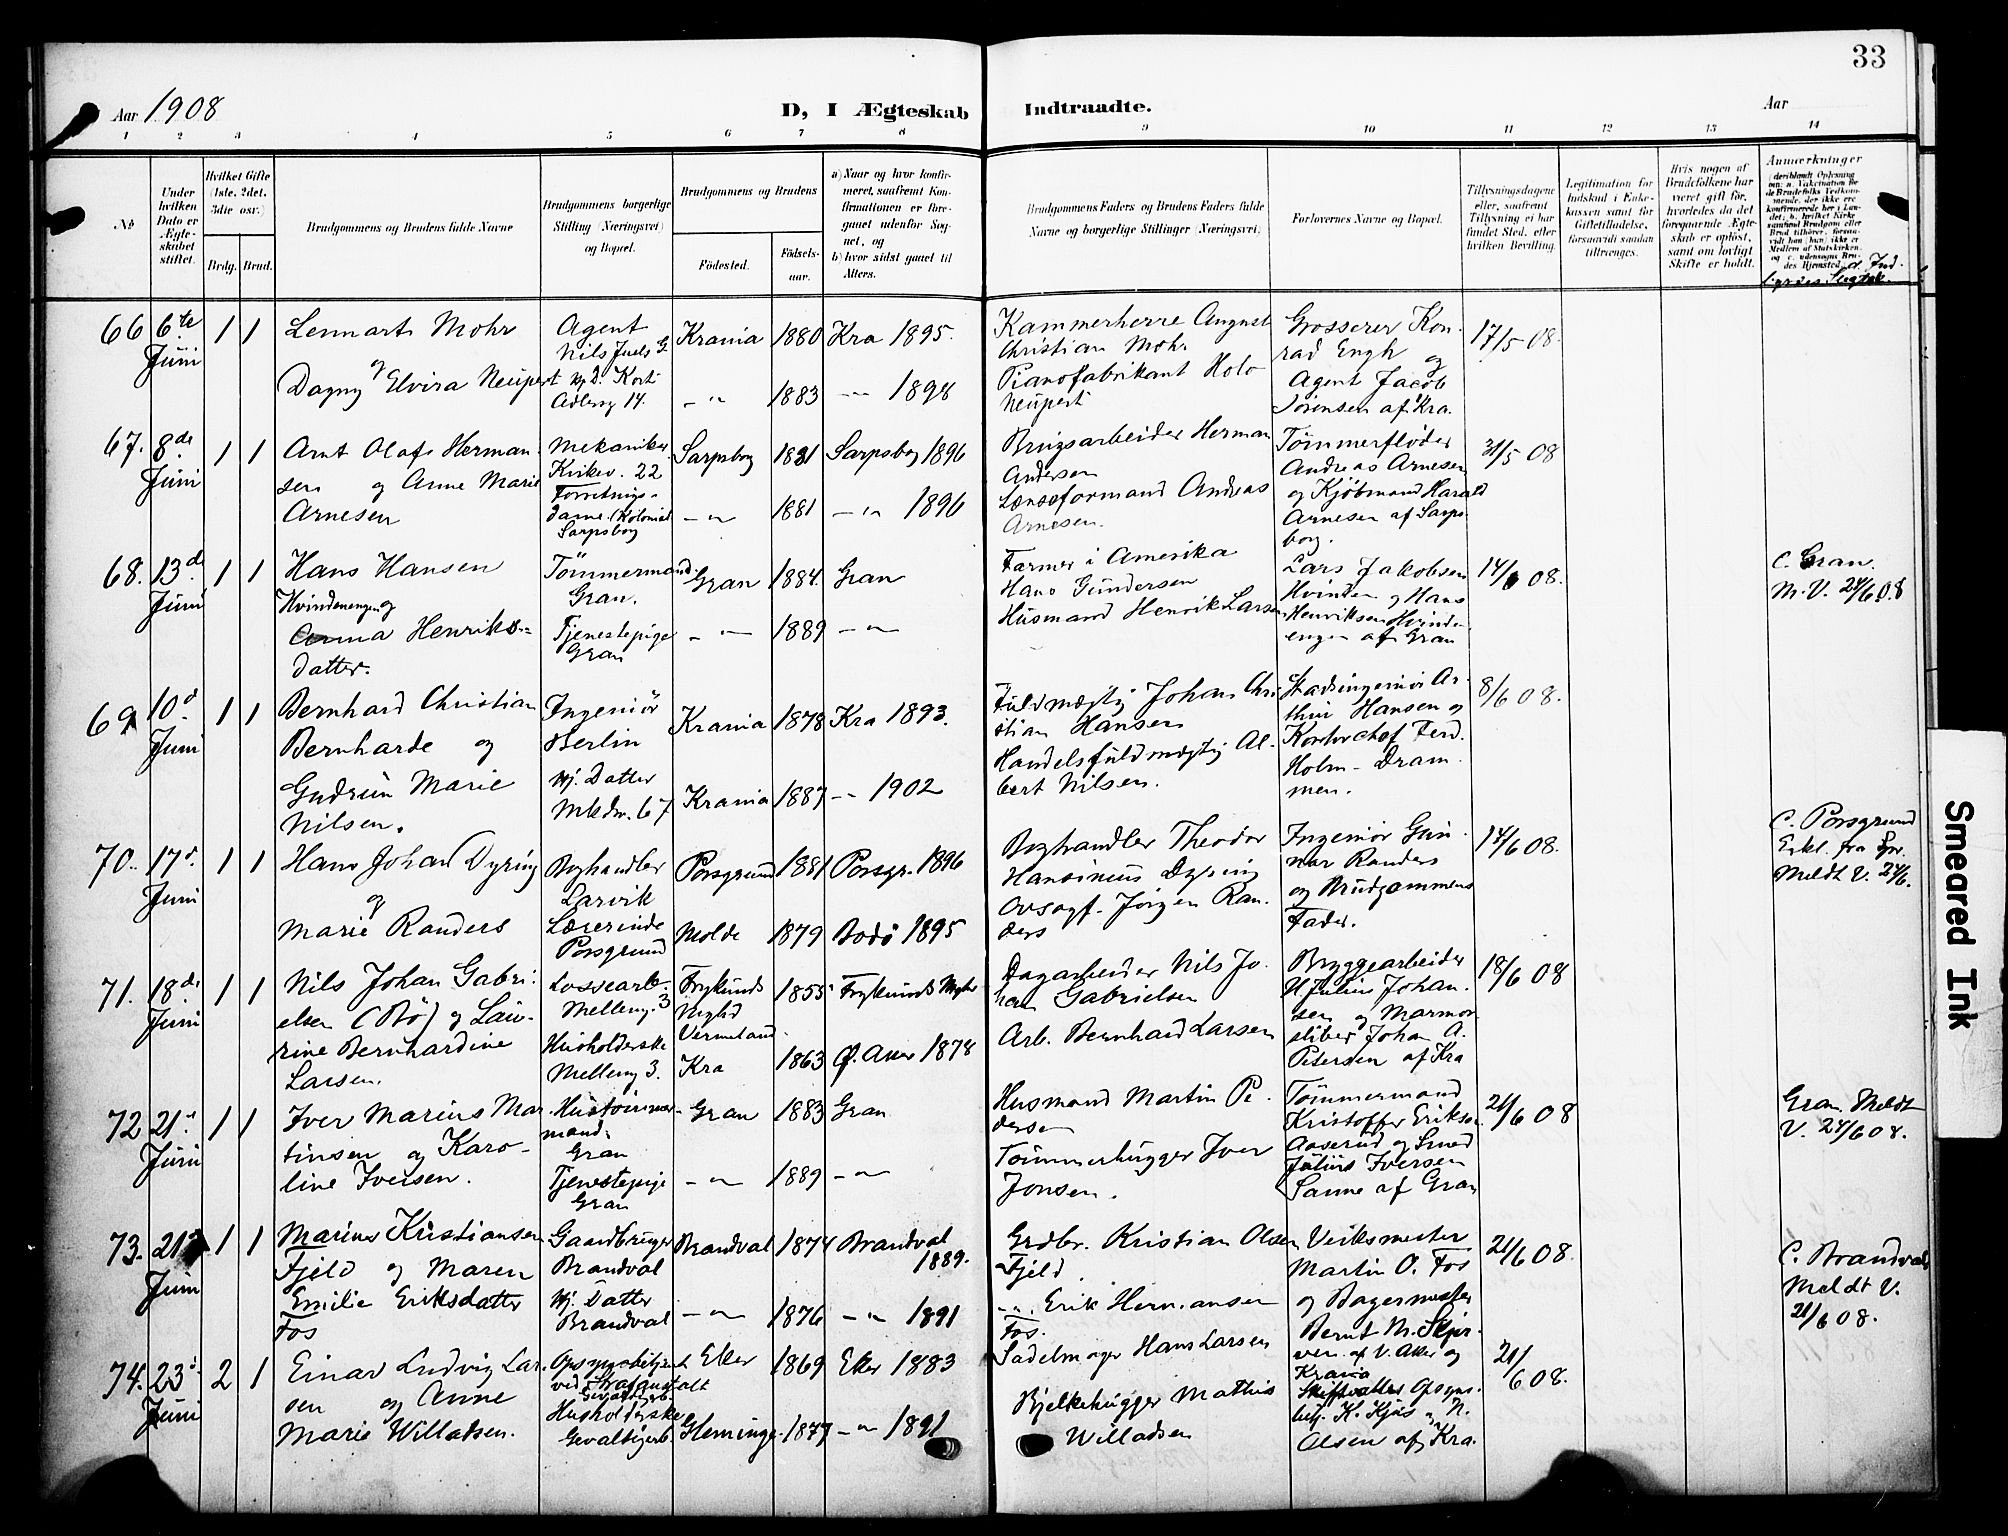 33
Aar 1908
D, I Ægteskab Indtraadte.
Aar
1 2 3 4 5 6 7 8 9 10 11 12 13 14
No
Under hvilken Dato er Ægteskabet stiftet.
Hvilket Gifte (1ste, 2det, 3die osv.)
Brdg. Brud.
Brudgommens og Brudens fulde Navne
Brudgommens borgerlige Stilling (Næringsvei) og Bopæl.
Brudgommens og Brudens
Fødested.
Fødsels-aar.
a) Naar og hvor konfirmeret, saafremt Konfirmationen er foregaaet udenfor Sognet, og
b) hvor sidst gaaet til Alters.
Brudgommens Faders og Brudens Faders fulde Navne og borgerlige Stillinger (Næringsvei)
Forlovernes Navne og Bopæl.
Tillysningsdagene eller, saafremt Tillysning ei har fundet Sted, efter hvilken Bevilling.
Legitimation for Indskud i Enkekassen samt for Giftetilladelse, forsaavidt saadan tiltrænges.
Hvis nogen af Brudefolkene har været gift før, hvorledes da det foregaaende Ægteskab er opløst, samt om lovligt Skifte er holdt.
Anmerkninger
66 6te Juni 1 1
Lennart Mohr
og
Dagny Elvira Neupert
Agent
Nils Juels G.
Hj.D. Kort
Adlersg 14.
Krania 1880 Kra 1895.
-"- 1883 -"- 1898
Kammerherre August
Christian Mohr
Pianofabrikant Holo
Neupert
Grosserer Kon-
rad Engh og
Agent Jacob
Sørensen af Kra.
17/5 08.
67. 8de Juni 1 1
Arnt Olaf Herman-
sen og Anne Marie
Arnesen
Mekaniker
Kirkev. 22
Forretnings-
dame (Kolonial
Sarpsborg
Sarpsbog 1881 Sarpsbog 1896
-"- 1881 -"- 1896
Brugsarbeider Herman
Andersen
Lænseformand Andreas
Arnesen.
Tømmerfløder
Andreas Arnesen
og Kjøbmand Harald
Arnesen af Sarps-
borg.
31/5 08
68. 13d. Juni 1 1
Hans Hansen
Hvindenengen og
Anna Henriks-
datter.
Tømmermand
Gran.
Tjenestepige
Gran
Gran 1884. Gran
-"- 1889 -"-
Farmer i Amerika
Hans Gundersen
Husmand Henrik Larsen
Lars Jakobsen
Hvinden og Hans
Henriksen Hvinden-
engen af Gran
14/6 08.
C. Gran.
M.V. 24/6 08
69. 10d. Juni 1 1
Bernhard Christian
Bernharde og
Gudrun Marie
Nilsen.
Ingeniør
Berlin
Hj. Datter
Mkdv. 67
Krania 1878 Kra 1893.
Krania 1887 -"- 1902
Fuldmægtig Johan Chri-
stian Hansen
Handelsfuldmægtig Al-
bert Nilsen.
Stadsingeniør Ar-
thur Hansen og
Kontorchef Ferd.
Holm - Dram-
men.
8/6 08.
70. 17d. Juni 1 1
Hans Johan Dyring
og
Marie Randers
Boghandler
Larvik
Lærerinde
Porsgrund
Porsgrund 1881 Porsgr. 1896
Molde 1879 Bodø 1895
Boghandler Theodor
Hansinius Dyring
Ovsagf. Jørgen Ran-
ders
Ingeniør Gun-
nar Randers
og Brudgommens
Fader.
14/6 08.
C. Porsgrund
Erkl. fra Spr.
Meldt V. 24/6.
71. 18de Juni 1 1
Nils Johan Gabri-
elsen (Bø) og Lau-
rine Bernhardine
Larsen.
Lossearb.
Melleng. 3
Husholderske
Melleng 3.
Frykunds
Vermeland
1855
Kra 1863 Ø. Aker 1878
Dagarbeider Nils Jo-
han Gabrielsen
Arb. Bernhard Larsen
Bryggearbeider
Hjulius Johan-
sen og Marmor
sliber Johan A.
Petersen af Kra
18/6 08
72 21d. Juni 1 1
Iver Marius Mar-
tinsen og Karo-
line Iversen.
Hustømmer-
mand.
Gran
Tjenestepige
Gran
Gran 1883 Gran
-"- 1889 -"-
Husmand Martin Pe-
dersen
Tømmerhugger Iver
Jonsen.
Tømmermand
Kristoffer Eriksen
Aaserud og Smed
Julius Iversen
Sanne af Gran
21/6 08
Gran. Meldt
V. 24/6 08.
73. 21d. Juni 1 1
Marius Kristiansen
Fjeld og Maren
Emilie Eriksdatter
Fos
Gaardbruger
Brandval
Hj. Datter
Brandval
Brandval 1874 Brandval
1889.
-"- 1876 -"- 1891
Grdbr. Kristian Olsen
Fjeld.
-"- Erik Hermansen
Fos.
Verksmester
Martin O. Fos
og Bagermester
Bernt M. Skjer-
ven af V. Aker og
Krania
21/6 08.
C. Brandval
Meldt V.
21/6 08.
74. 23d. Juni 2 1
Einar Ludvig Lar-
sen og Anne
Marie Willadsen.
Opsynsbetjent
ved Strafanstalt
Husholderske
Gevaltigerb.
Eker 1869 Eker 1883
Glemminge 1877 -"- 1891
Sadelmager Hans Larsen
Bjelkehugger Mathis
Willadsen
Opsyns-
betj. K. Kjøs og N.
Olsen af Kra.
21/6 08.
Smeared Ink